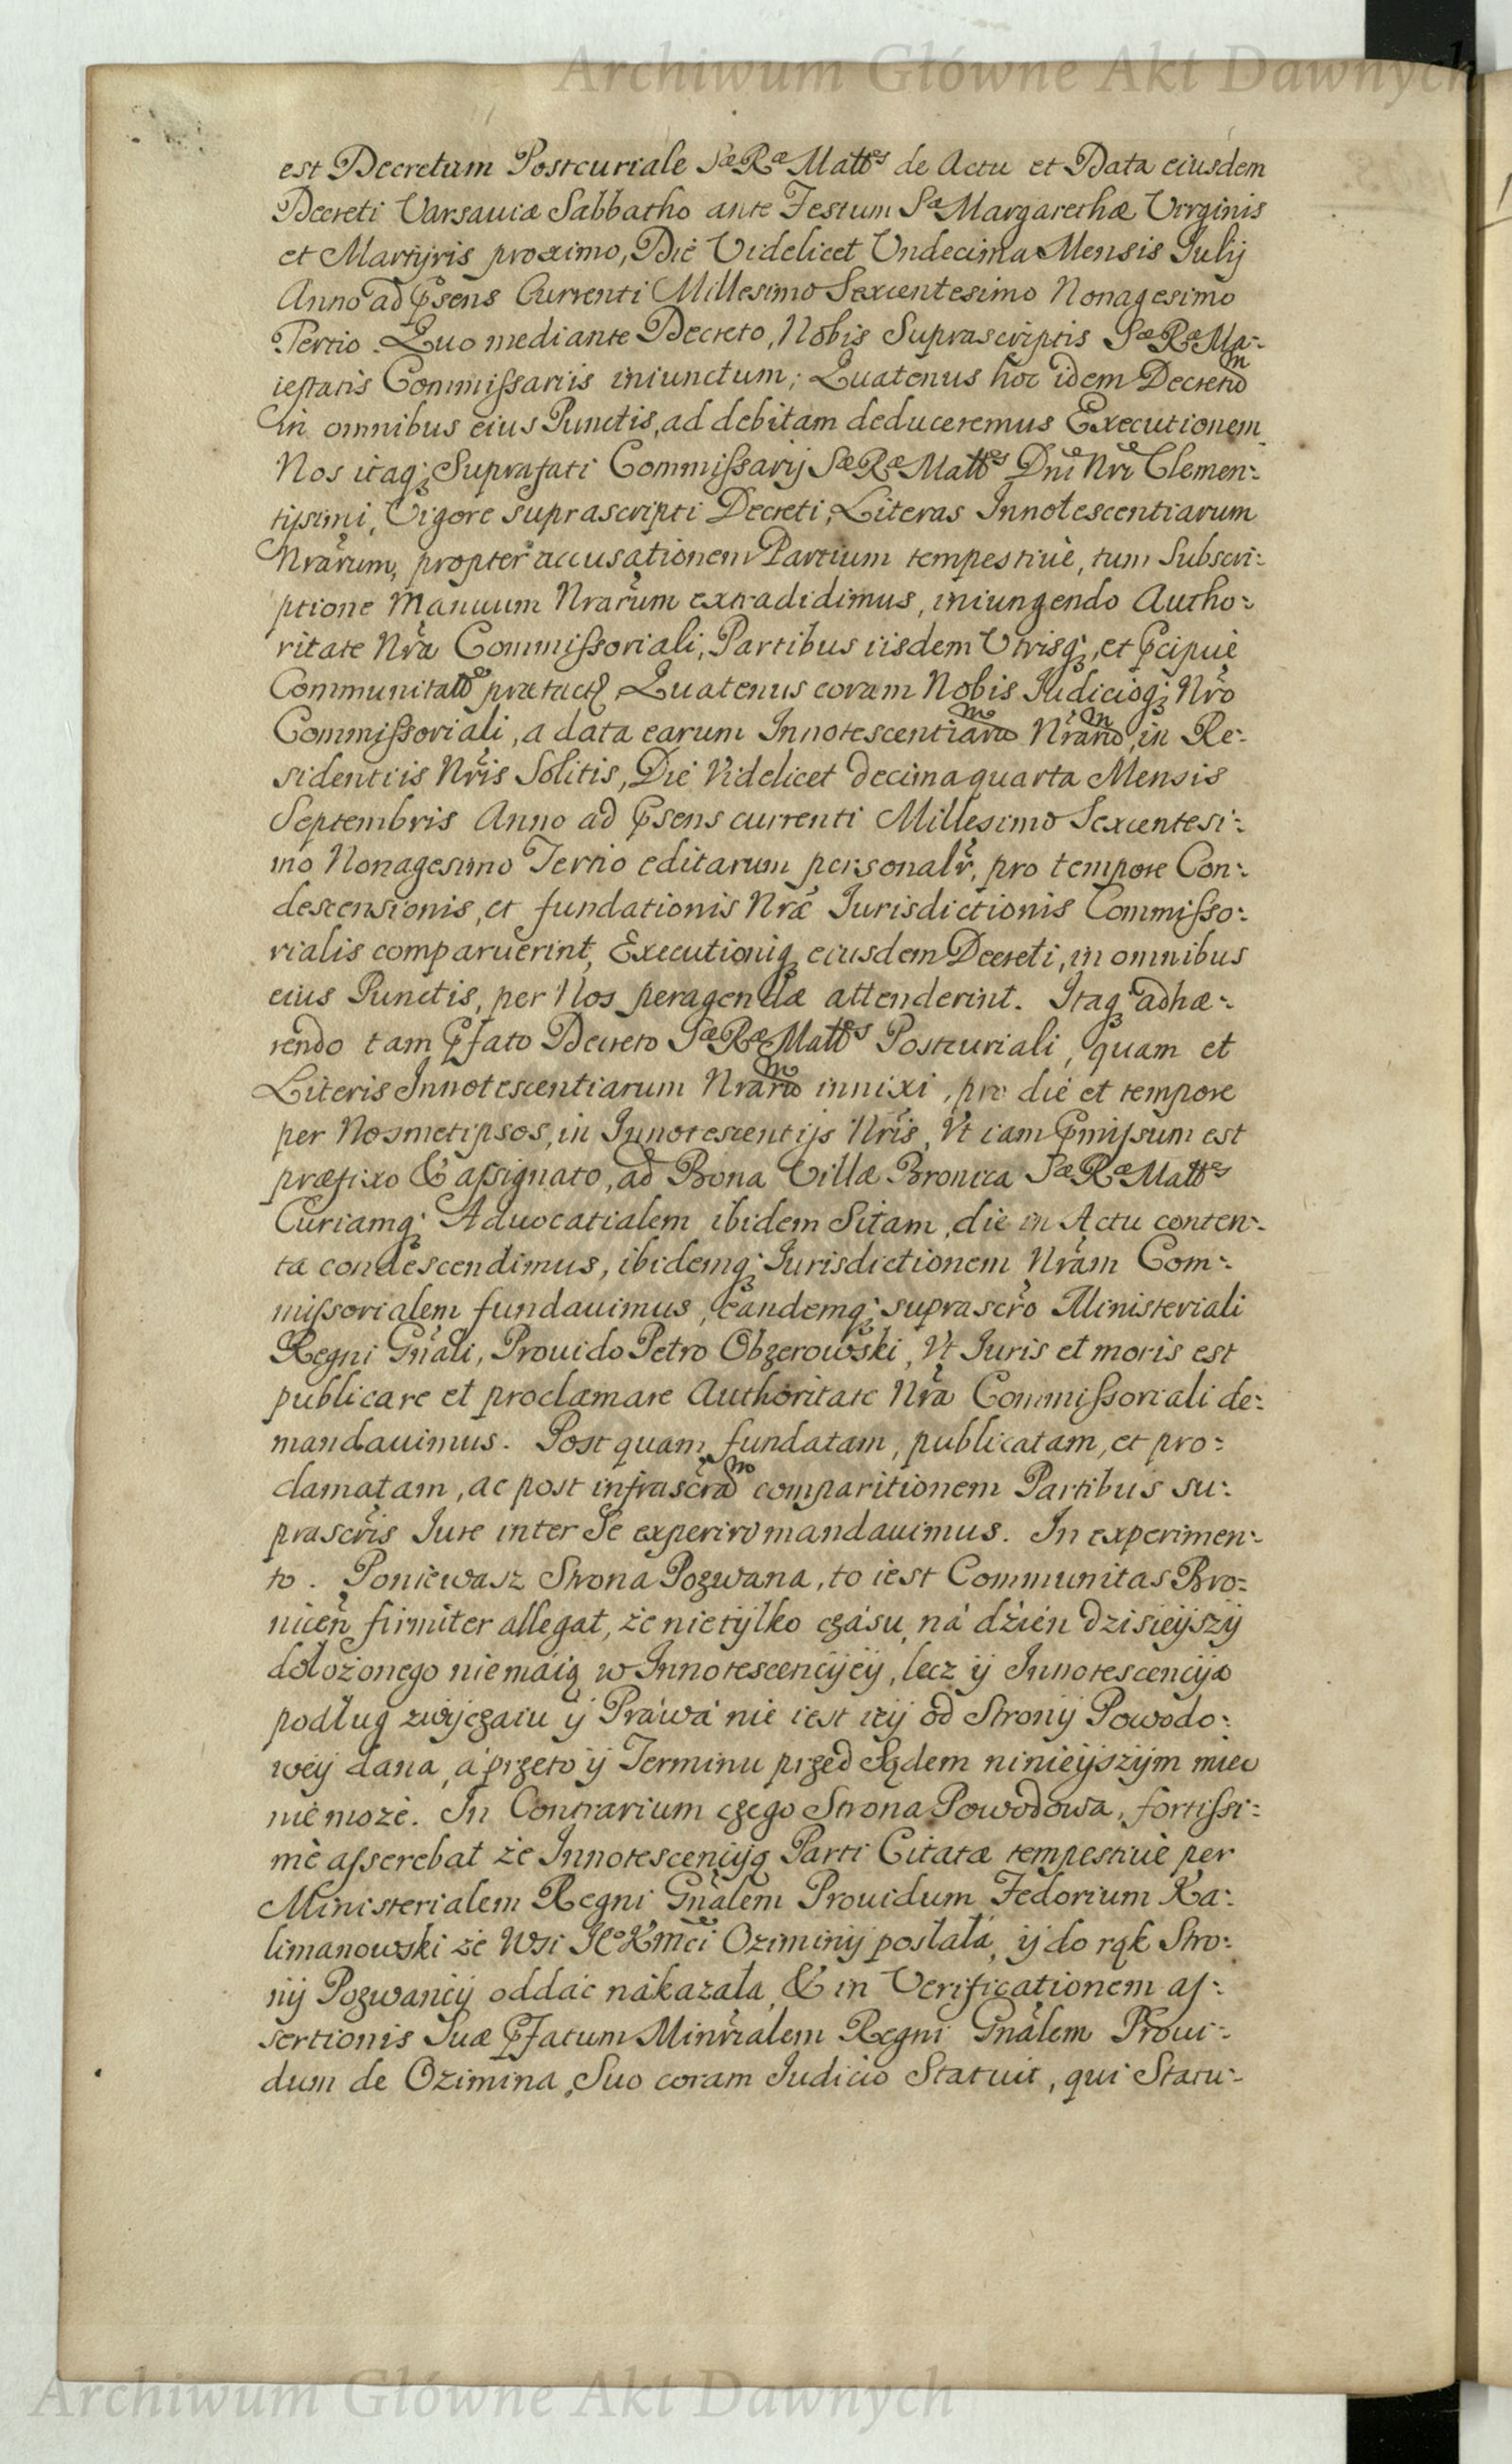 Archiwum Główne Akt Dawnych
est Decretum Postcuriale Sæ Ræ Mattis de Actu et Data eiusdem
Decreti Varsauiæ Sabbatho ante Festum Sæ Margarethæ Virginis
et Martyris proximo, Die Videlicet Undecima Mensis Iulij
Anno ad Psens Currenti Millesimo Sexcentesimo Nonagesimo
Tertio. Quo mediante Decreto, Nobis Suprascriptis Sæ Ræ Ma-:
iestatis Commissariis iniunctum; Quatenus hoc idem Decretum
in omnibus eius Punctis, ad debitam deduceremus Executionem
Nos itaq; Suprafati Commissarij Sæ Ræ Mattis Dni Nri Clemen-:
tissimi, Vigore suprascripti Decreti, Literas Innotescentiarum
Nrarum, propter accusationem Partium tempestiuè, tum Subscri-:
ptione Manuum Nrarum extradidimus, iniungendo Autho-:
ritate Nra Commissoriali, Partibus iisdem Utrisq;, et Pcipuè
Communitati prætactæ, Quatenus coram Nobis Iudicioq; Nro
Commissoriali, a data earum Innotescentiarum Nrarum, in Re-:
sidentiis Nris Solitis, Die Videlicet decima quarta Mensis
Septembris Anno ad Psens currenti Millesimo Sexcentesi-:
mo Nonagesimo Tertio editarum personalr, pro tempore Con-:
descensionis, et fundationis Nræ Iurisdictionis Commisso-:
rialis comparuerint, Executioniq; eiusdem Decreti, in omnibus
eius Punctis, per Nos peragendæ attenderint. Itaq; adhæ-:
rendo tam Pfato Decreto Sæ Ræ Mattis Postcuriali, quam et
Literis Innotescentiarum Nrarum innixi, pro die et tempore
per Nosmetipsos, in Innotescentijs Nris, Vt iam Pmissum est
præfixo & assignato, ad Bona Villæ Bronica Sæ Ræ Mattis
Curiamq; Aduocatialem ibidem Sitam, die in Actu conten-:
ta condescendimus, ibidemq; Iurisdictionem Nram Com-:
missorialem fundauimus, eandemq; suprascro Ministeriali
Regni Gnali, Prouido Petro Obzerowski, Vt Iuris et moris est
publicare et proclamare Authoritate Nra Commissoriali de-:
mandauimus. Post quam fundatam, publicatam, et pro-:
clamatam, ac post infrascram comparitionem Partibus su-:
prascris Iure inter Se experiri mandauimus. In experimen-:
to. Poniewasz Strona Pozwana, to iest Communitas Bro-:
nicen firmiter allegat, że nietylko czásu, ná dźień dzisieyszy
dołożonego niemáią w Innotescencyey, lecz y Innotescencya
podług zwyczaiu y Práwá nie iest iey od Strony Powodo-:
wey dana, á przeto y Terminu przed Sądem ninieyszym miec
nie moze. In Contrarium czego Strona Powodowa, fortissi-:
mè asserebat że Innotescencyą Parti Citatæ tempestiuè per
Ministerialem Regni Gnalem Prouidum Fedorium Ka-:
limanowski ze Wsi Ie° K Mci Oziminy posłała, y do rąk Stro-:
ny Pozwaney oddáć nákazała, & in Verificationem as-:
sertionis Suæ Pfatum Minrialem Regni Gnalem Proui-:
dum de Ozimina, Suo coram Iudicio Statuit, qui Statu-:
Archiwum Główne Akt Dawnych